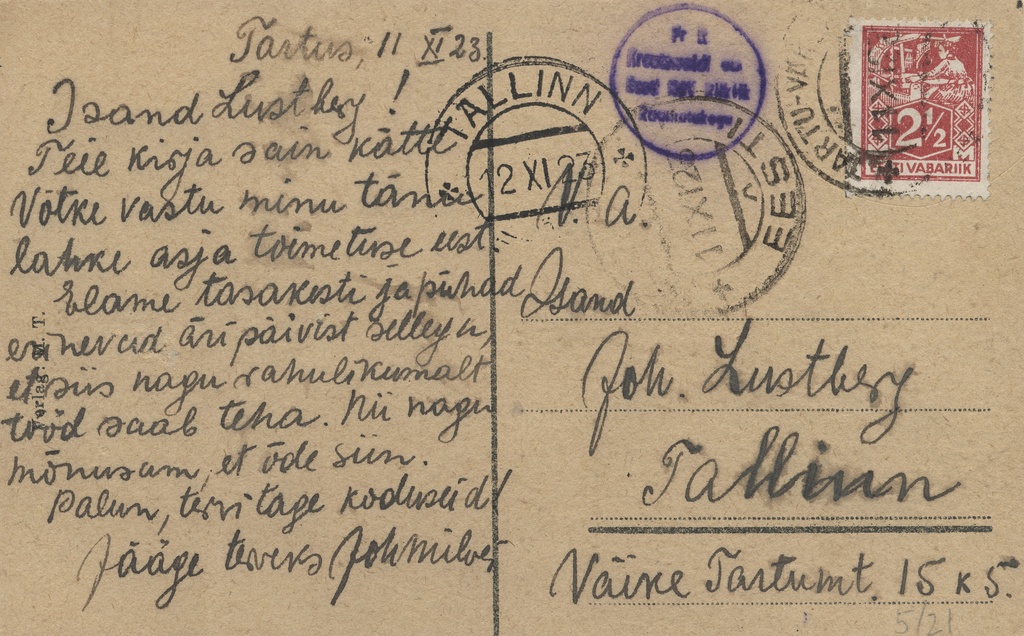 Tartus, 11 XI 23.
Isand Lustberg!
Teie kirja sain kätte
Võtke vastu minu tänu
lahke asja toimetuse eest.
Elame tasakesti ja pühad
erinevad äripäivist sellega,
et siis nagu rahulikumalt
tööd saab teha. Nii nagu
mõnusam, et õde siin.
Palun, tervitage koduseid!
Jääge terveks Joh Milve
Verlag T.
TALLINN
12 XI 23
EESTI
11 XI 23
TARTU
EESTI VABARIIK
2½
V. a.
Isand
Joh. Lustberg
Tallinn
Väike Tartumt. 15 K 5.
5/21